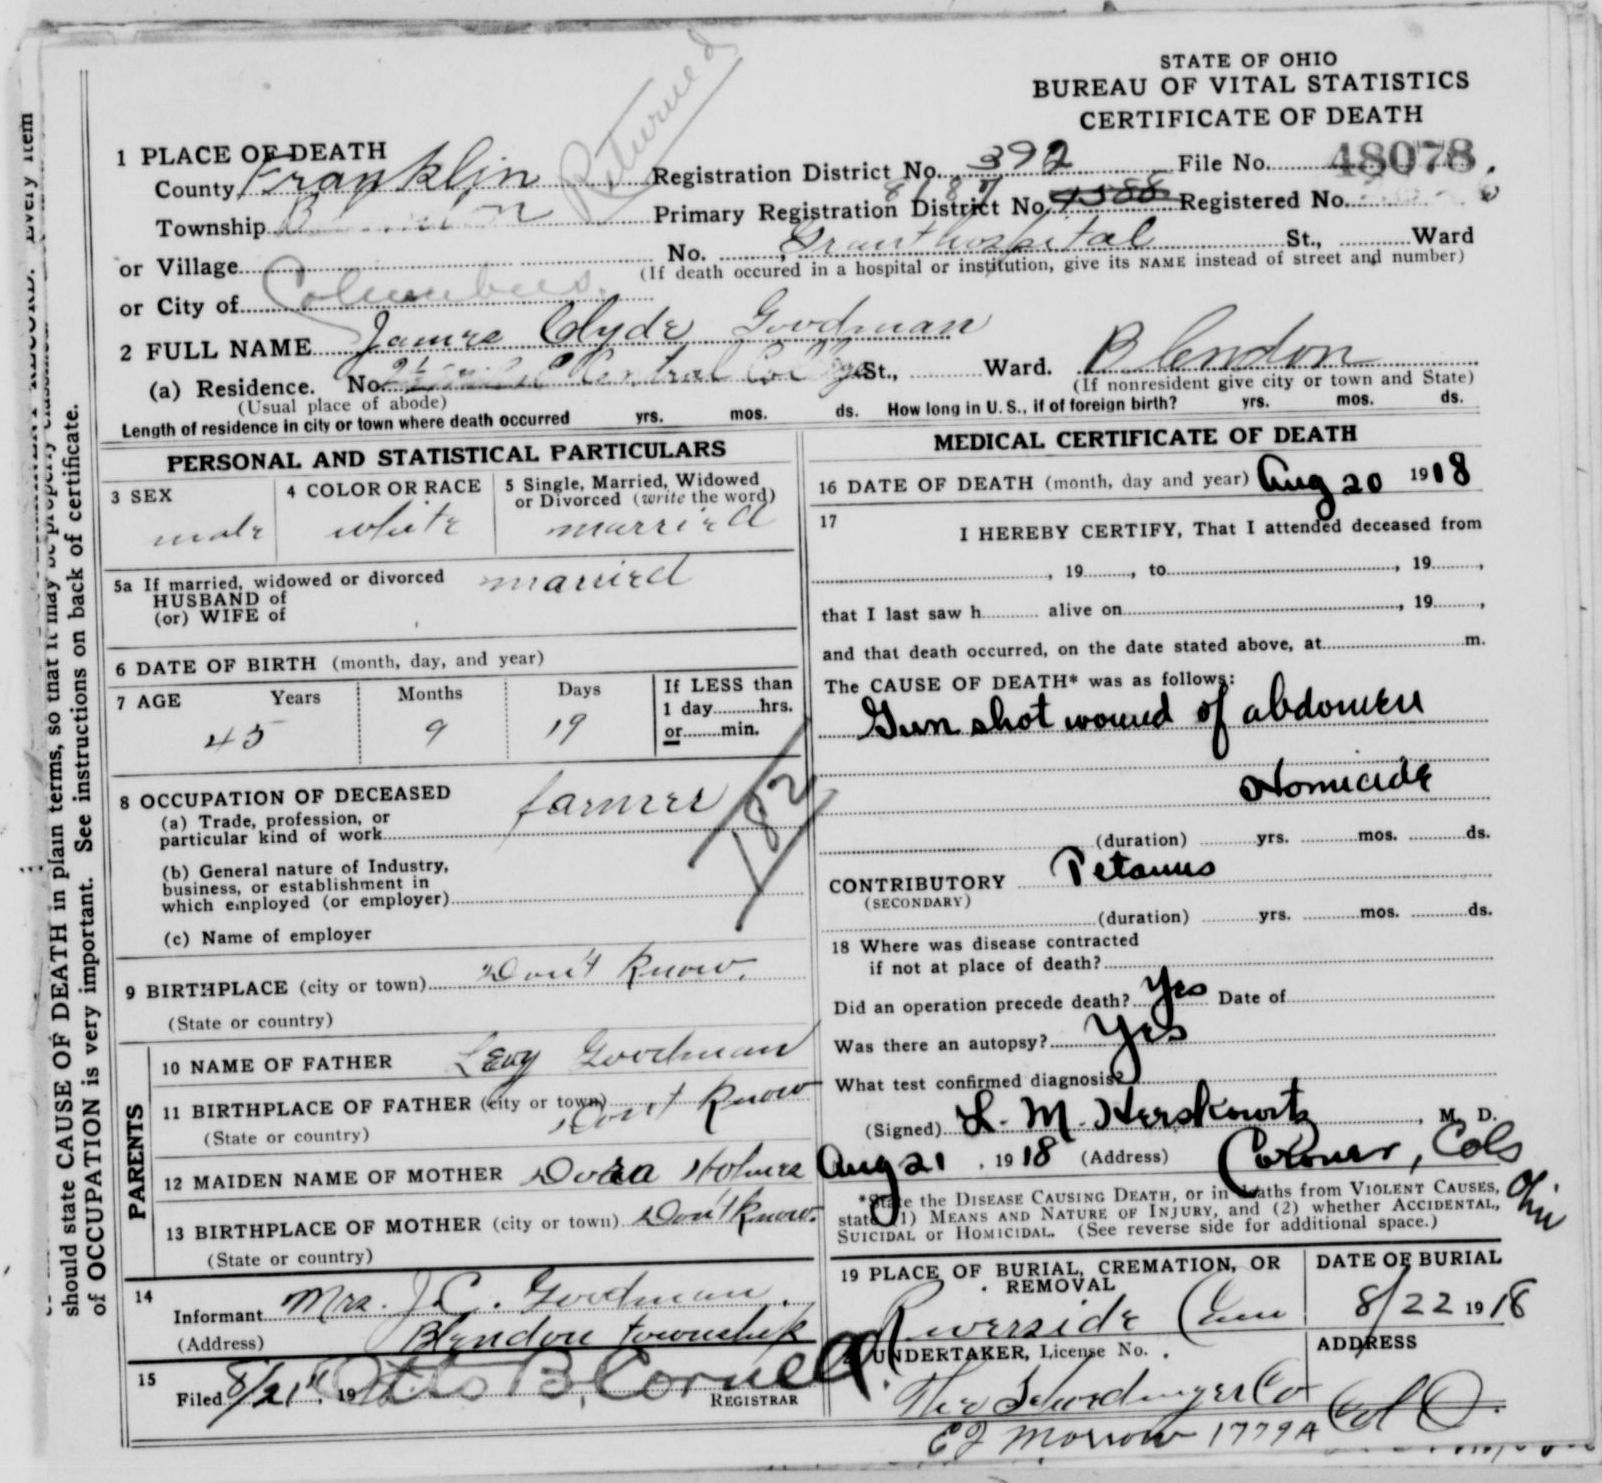 Returned
STATE OF OHIO
BUREAU OF VITAL STATISTICS
CERTIFICATE OF DEATH
1 PLACE OF DEATH
County Franklin Registration District No. 392 File No. 48078
Township Primary Registration District No. 8187 Registered No.
or Village No. Grant hospital St., Ward
(If death occured in a hospital or institution, give its NAME instead of street and number)
or City of Columbus.
2 FULL NAME James Clyde Goodman
(a) Residence. No. Central College St., Ward. Blendon
(Usual place of abode) (If nonresident give city or town and State)
Length of residence in city or town where death occurred yrs. mos. ds. How long in U. S., if of foreign birth? yrs. mos. ds.
PERSONAL AND STATISTICAL PARTICULARS
3 SEX 4 COLOR OR RACE 5 Single, Married, Widowed
or Divorced (write the word)
male white married
5a If married, widowed or divorced married
HUSBAND of
(or) WIFE of
6 DATE OF BIRTH (month, day, and year)
7 AGE Years Months Days If LESS than
1 day hrs.
45 9 19 or min.
8 OCCUPATION OF DECEASED
(a) Trade, profession, or farmer
particular kind of work 182
(b) General nature of Industry,
business, or establishment in
which employed (or employer)
(c) Name of employer
9 BIRTHPLACE (city or town) Don't Know.
(State or country)
PARENTS
10 NAME OF FATHER Levy Goodman
11 BIRTHPLACE OF FATHER (city or town) Don't Know
(State or country)
12 MAIDEN NAME OF MOTHER Dora Holmes
13 BIRTHPLACE OF MOTHER (city or town) Don't Know.
(State or country)
14
Informant Mrs. J.C. Goodman.
(Address) Blendon township
15
Filed 8/21", 19 Otto B. Cornell.
REGISTRAR
MEDICAL CERTIFICATE OF DEATH
16 DATE OF DEATH (month, day and year) Aug 20 1918
17
I HEREBY CERTIFY, That I attended deceased from
, 19 , to , 19 ,
that I last saw h alive on , 19 ,
and that death occurred, on the date stated above, at m.
The CAUSE OF DEATH* was as follows:
Gun shot wound of abdomen
Homicide
(duration) yrs. mos. ds.
CONTRIBUTORY Tetanus
(SECONDARY)
(duration) yrs. mos. ds.
18 Where was disease contracted
if not at place of death?
Did an operation precede death? Yes Date of
Was there an autopsy? Yes
What test confirmed diagnosis?
(Signed) L. M. Herskowitz, M. D.
Aug 21, 1918 (Address) Coroner, Cols
Ohio
*State the DISEASE CAUSING DEATH, or in deaths from VIOLENT CAUSES,
state (1) MEANS AND NATURE OF INJURY, and (2) whether ACCIDENTAL,
SUICIDAL or HOMICIDAL. (See reverse side for additional space.)
19 PLACE OF BURIAL, CREMATION, OR
REMOVAL
Riverside Cem
DATE OF BURIAL
8/22 1918
UNDERTAKER, License No.
ADDRESS
The Schoedinger Co Col O.
EJ Morrow 1779A
should state CAUSE OF DEATH in plain terms, so that it may be properly classified.
of OCCUPATION is very important. See instructions on back of certificate.